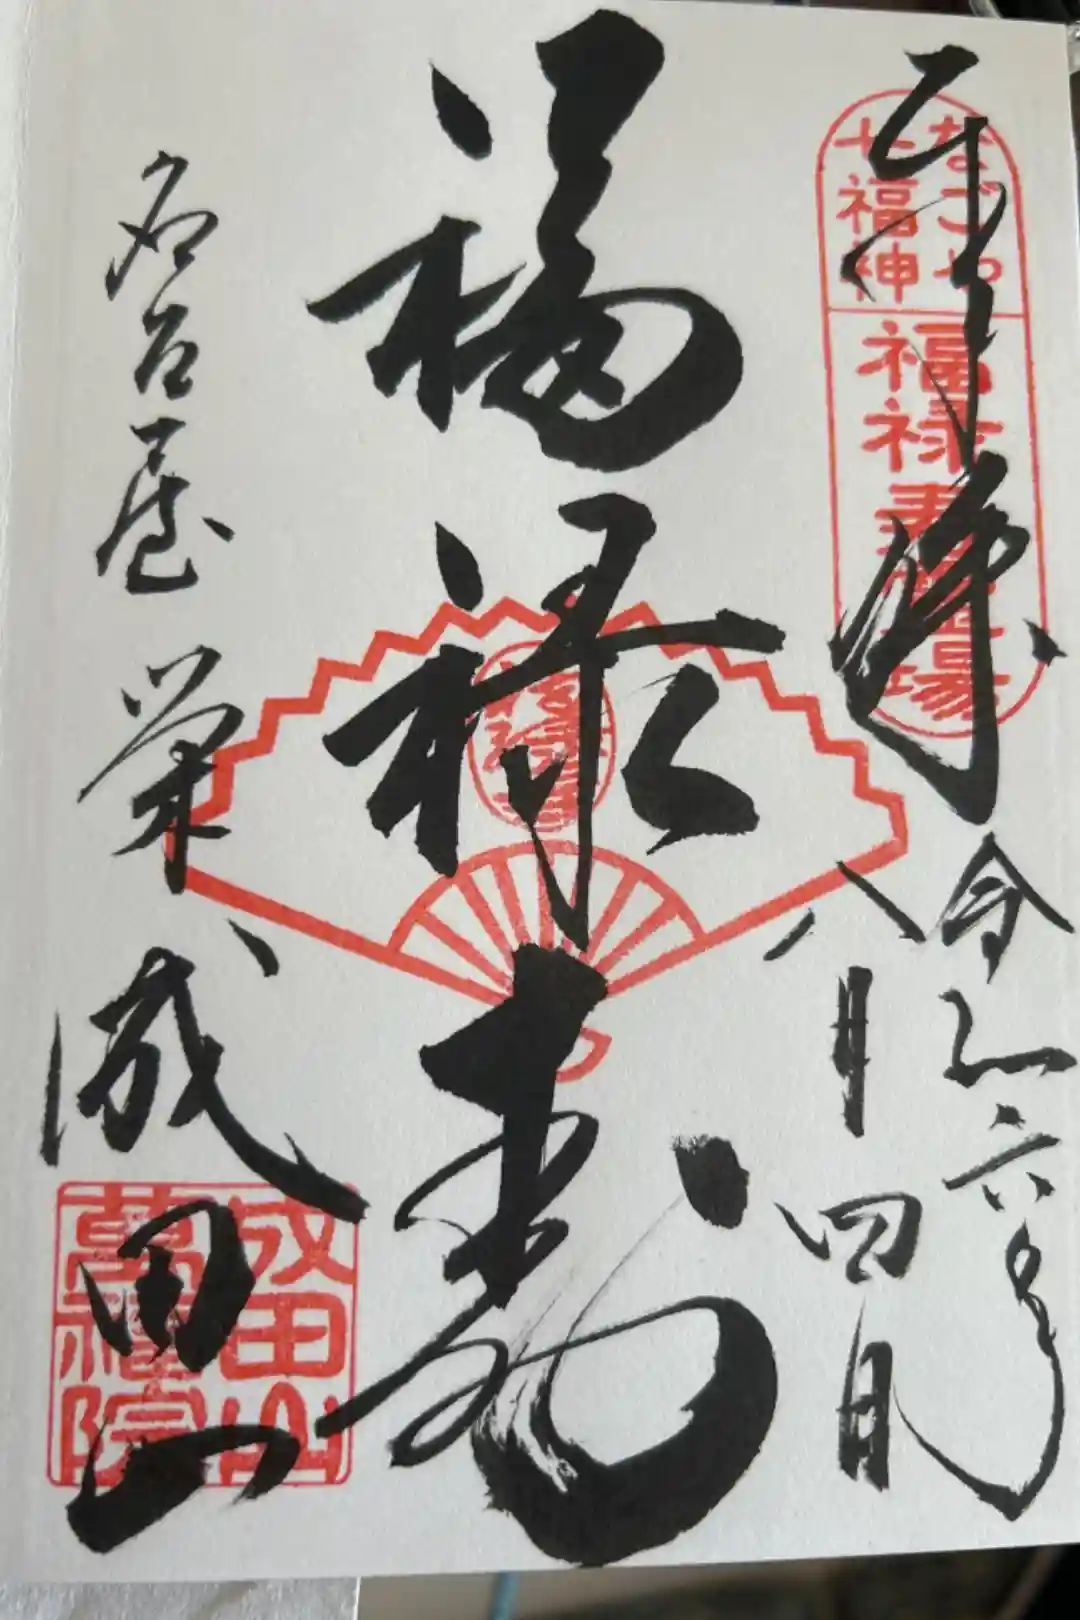 奉拝
令和六年
八月四日
なごや
七福神
福禄寿霊場
福禄寿
名古屋栄
成田山
成田山
萬福院